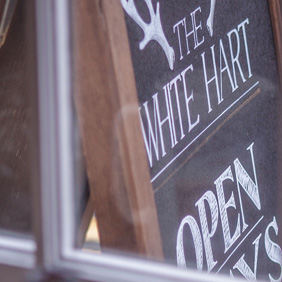 THE
WHITE HART
OPEN